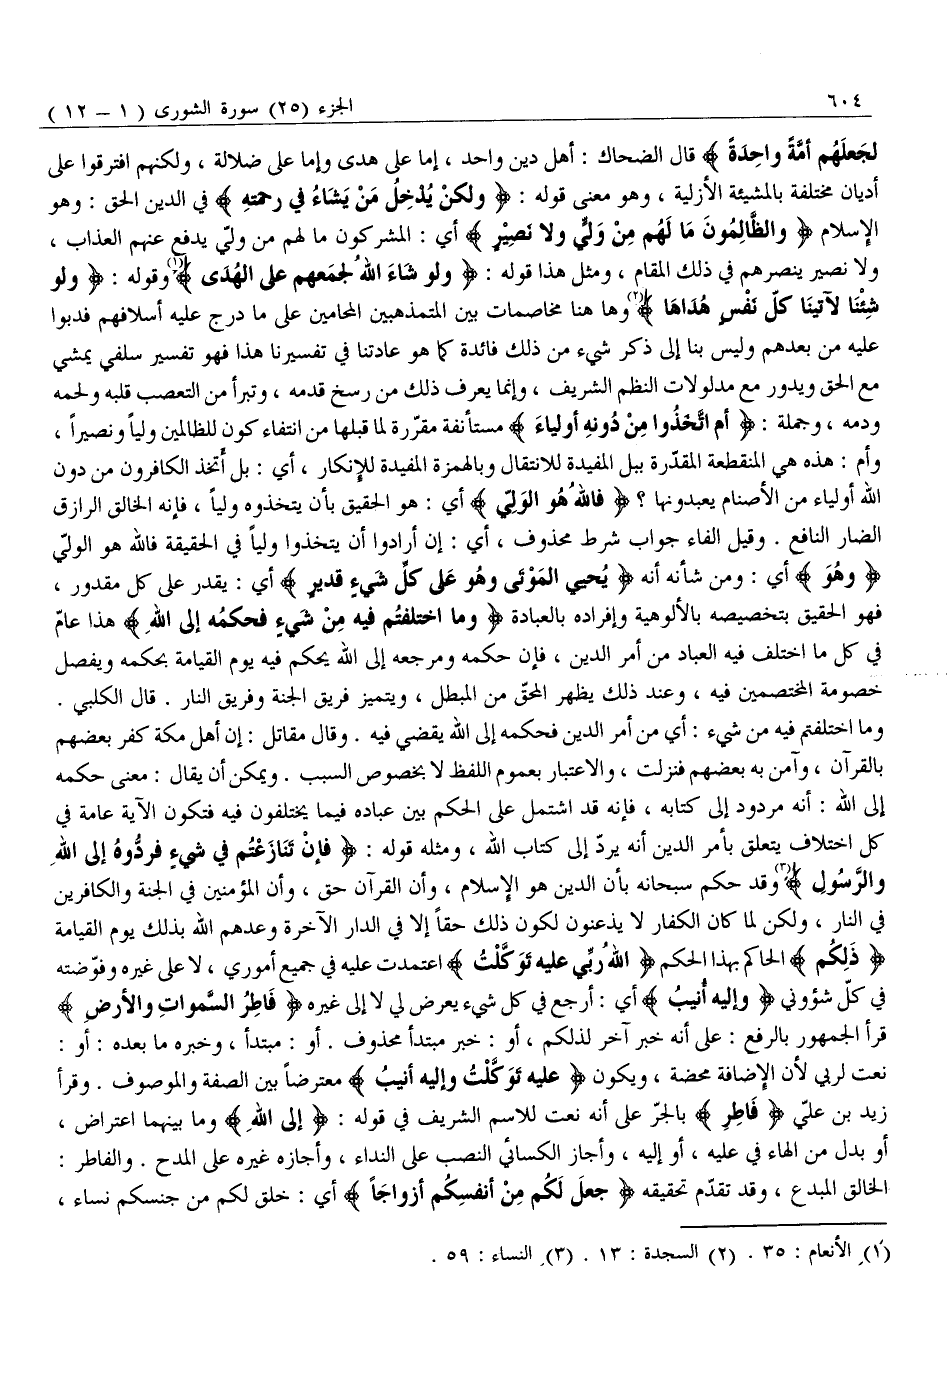 ٦٠٤
الجزء (٢٥) سورة الشورى ( ١ – ١٢ )
لجَعلَهُم أمَّةً واحِدَةً ﴾ قال الضحاك : أهل دين واحد ، إما على هدى وإما على ضلالة ، ولكنهم افترقوا على
أديان مختلفة بالمشيئة الأزلية ، وهو معنى قوله : ﴿ ولكنْ يُدْخِلُ مَنْ يَشَاءُ في رحمتهِ ﴾ في الدين الحق : وهو
الإسلام ﴿ والظَّالِمُونَ مَا لَهُم مِنْ وَليٍّ ولا نَصيْرٍ ﴾ أي : المشركون ما لهم من وليّ يدفع عنهم العذاب ،
ولا نصير ينصرهم في ذلك المقام ، ومثل هذا قوله : ﴿ ولو شَاءَ اللهُ لجمَعهم على الهُدَى ﴾(١) وقوله : ﴿ ولو
شِئْنَا لآتينَا كلّ نَفْسٍ هُدَاهَا ﴾(٢) وها هنا مخاصمات بين المتمذهبين المحامين على ما درج عليه أسلافهم فدبوا
عليه من بعدهم وليس بنا إلى ذكر شيء من ذلك فائدة كما هو عادتنا في تفسيرنا هذا فهو تفسير سلفي يمشي
مع الحق ويدور مع مدلولات النظم الشريف ، وإنما يعرف ذلك من رسخ قدمه ، وتبرأ من التعصب قلبه ولحمه
ودمه ، وجملة : ﴿ أم اتَّخَذُوا مِنْ دُونهِ أولياءَ ﴾ مستأنفة مقرّرة لما قبلها من انتفاء كون للظالمين ولياً ونصيراً ،
وأم : هذه هي المنقطعة المقدّرة ببل المفيدة للانتقال وبالهمزة المفيدة للإنكار ، أي : بل أتخذ الكافرون من دون
الله أولياء من الأصنام يعبدونها ؟ ﴿ فاللهُ هُو الوَليّ ﴾ أي : هو الحقيق بأن يتخذوه ولياً ، فإنه الخالق الرازق
الضار النافع . وقيل الفاء جواب شرط محذوف ، أي : إن أرادوا أن يتخذوا ولياً في الحقيقة فالله هو الوليّ
﴿ وهُوَ ﴾ أي : ومن شأنه أنه ﴿ يُحيي المَوْتَى وهُو عَلى كلِّ شَيءٍ قديرٍ ﴾ أي : يقدر على كل مقدور ،
فهو الحقيق بتخصيصه بالألوهية وإفراده بالعبادة ﴿ وما اختلفتُم فيه مِنْ شَيءٍ فحكمُه إلى اللهِ ﴾ هذا عامّ
في كل ما اختلف فيه العباد من أمر الدين ، فإن حكمه ومرجعه إلى الله يحكم فيه يوم القيامة بحكمه ويفصل
خصومة المختصمين فيه ، وعند ذلك يظهر المحقّ من المبطل ، ويتميز فريق الجنة وفريق النار . قال الكلبي .
وما اختلفتم فيه من شيء : أي من أمر الدين فحكمه إلى الله يقضي فيه . وقال مقاتل : إن أهل مكة كفر بعضهم
بالقرآن ، وآمن به بعضهم فنزلت ، والاعتبار بعموم اللفظ لا بخصوص السبب . ويمكن أن يقال : معنى حكمه
إلى الله : أنه مردود إلى كتابه ، فإنه قد اشتمل على الحكم بين عباده فيما يختلفون فيه فتكون الآية عامة في
كل اختلاف يتعلق بأمر الدين أنه يردّ إلى كتاب الله ، ومثله قوله : ﴿ فإنْ تَنَازَعْتُم في شيءٍ فردُّوهُ إلى اللهِ
والرَّسُولِ ﴾(٣) وقد حكم سبحانه بأن الدين هو الإسلام ، وأن القرآن حق ، وأن المؤمنين في الجنة والكافرين
في النار ، ولكن لما كان الكفار لا يذعنون لكون ذلك حقاً إلا في الدار الآخرة وعدهم الله بذلك يوم القيامة
﴿ ذَلِكُم ﴾ الحاكم بهذا الحكم ﴿ اللهُ ربِّي عليه تَوكَّلْتُ ﴾ اعتمدت عليه في جميع أموري ، لا على غيره وفوّضته
في كلّ شؤوني ﴿ وإليهِ أُنيبُ ﴾ أي : أرجع في كل شيء يعرض لي لا إلى غيره ﴿ فَاطِرُ السَّمواتِ والأرضِ ﴾
قرأ الجمهور بالرفع : على أنه خبر آخر لذلكم ، أو : خبر مبتدأ محذوف . أو : مبتدأ ، وخبره ما بعده : أو :
نعت لربي لأن الإضافة محضة ، ويكون ﴿ عليه تَوكَّلْتُ وإليه أنيبُ ﴾ معترضاً بين الصفة والموصوف . وقرأ
زيد بن عليّ ﴿ فَاطِرِ ﴾ بالجرّ على أنه نعت للاسم الشريف في قوله : ﴿ إلى اللهِ ﴾ وما بينهما اعتراض ،
أو بدل من الهاء في عليه ، أو إليه ، وأجاز الكسائي النصب على النداء ، وأجازه غيره على المدح . والفاطر :
الخالق المبدع ، وقد تقدّم تحقيقه ﴿ جعلَ لَكُم مِنْ أنفسِكُم أزواجَاً ﴾ أي : خلق لكم من جنسكم نساء ،
(١) الأنعام : ٣٥ . (٢) السجدة : ١٣ . (٣) النساء : ٥٩ .